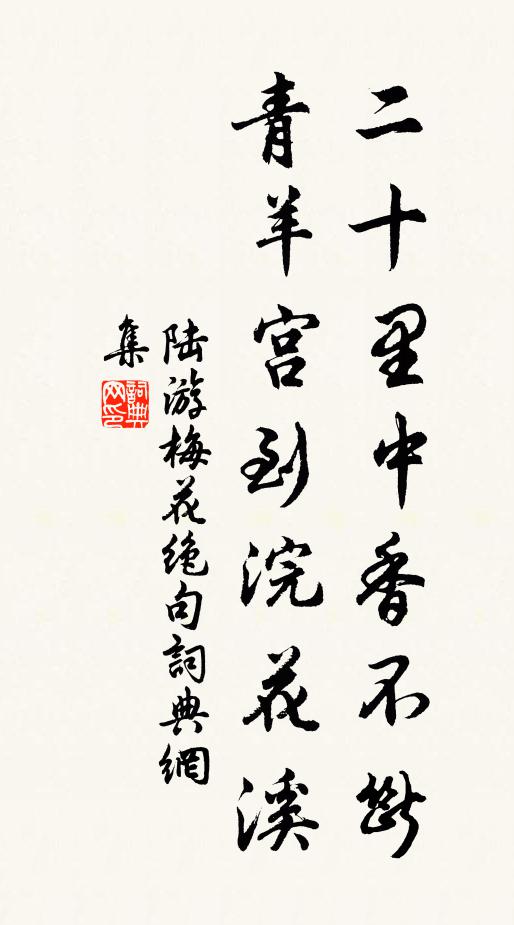 二十里中香不断
青羊宫到浣花溪
陆游梅花绝句詞典網
集
詞典
网印